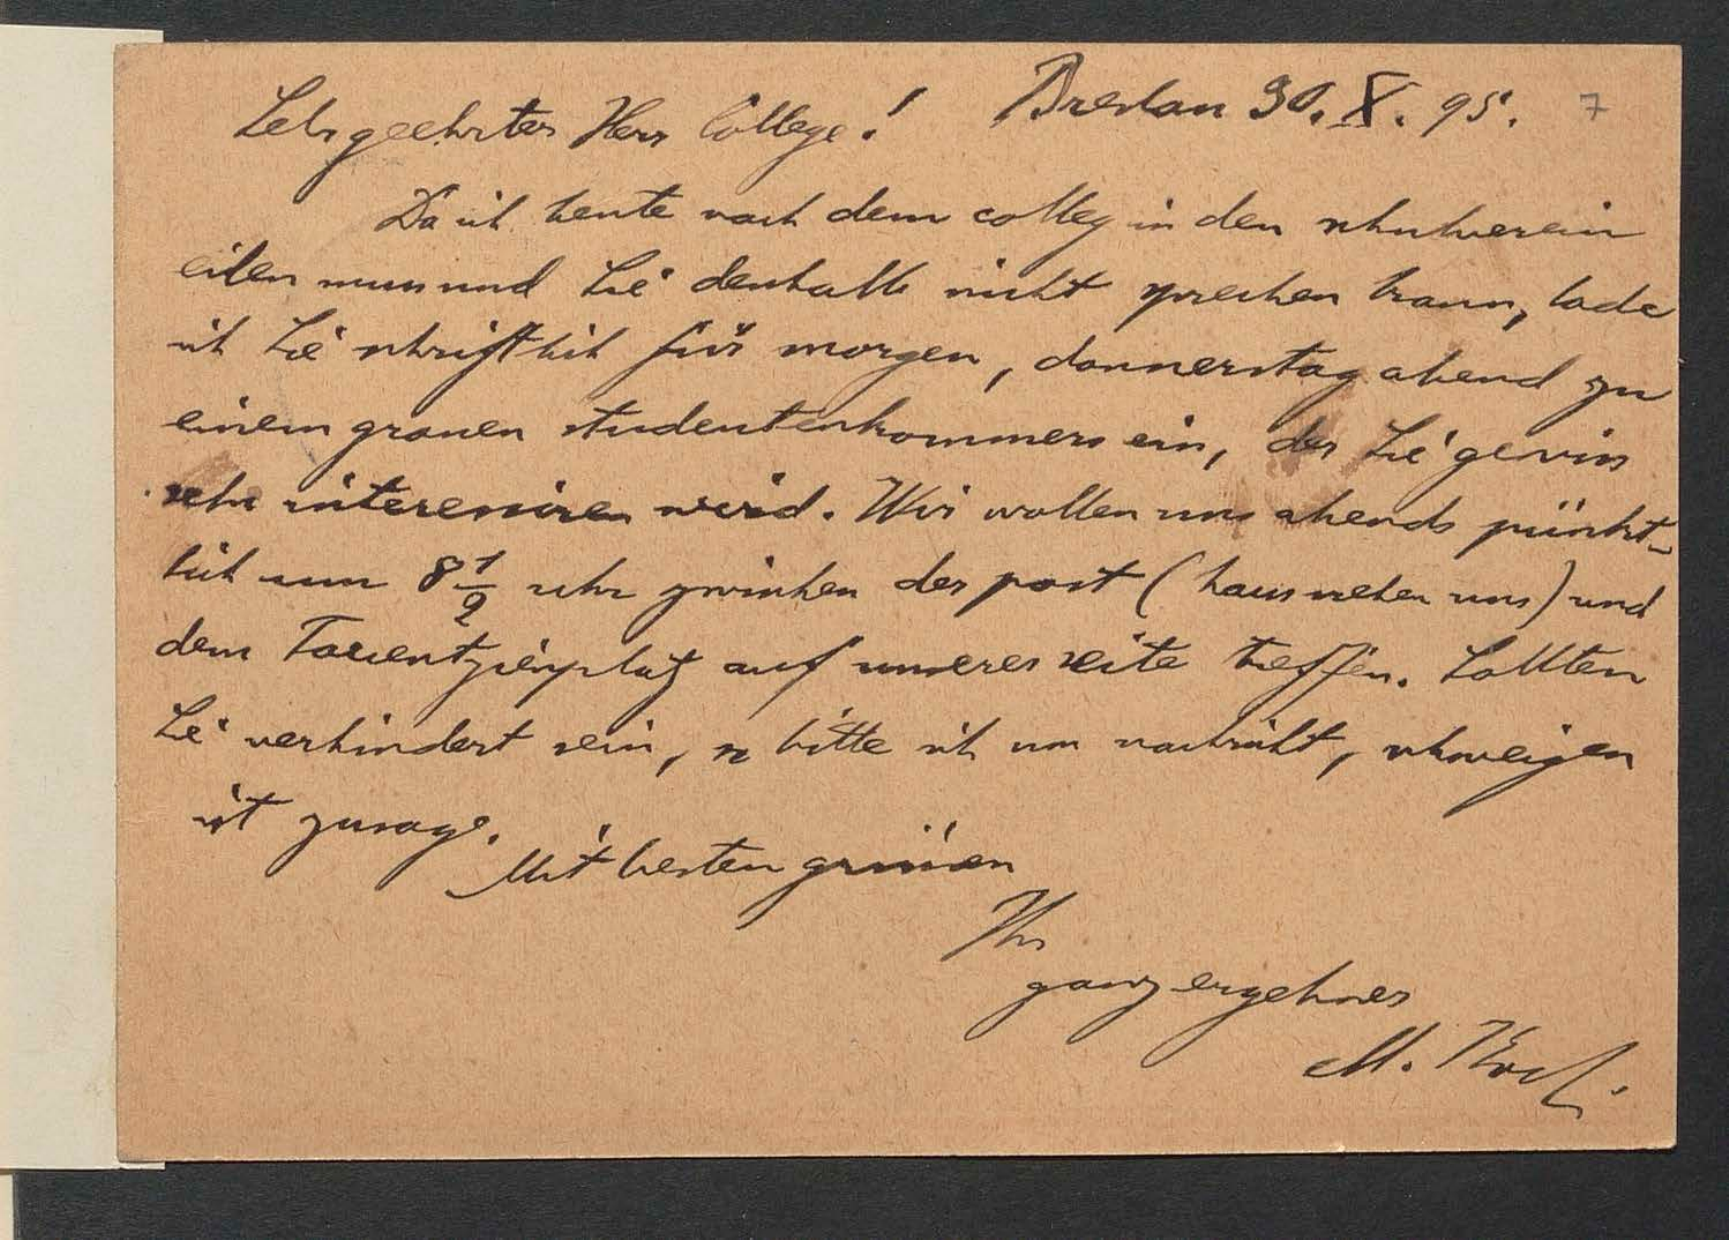 Breslau 30. X. 95. 7
Sehr geehrter Herr College!
Da ich heute nach dem colleg in den schulverein
eilen muss und Sie deshalb nicht sprechen kann, lade
ich Sie schriftlich für morgen, donnerstag abend zu
einem grossen studentenkommers ein, der Sie gewiss
sehr interessiren wird. Wir wollen uns abends pünkt-
lich um 8 1/2 uhr zwischen der post (haus neben uns) und
dem Tauentzienplatz auf unserer seite treffen. Sollten
Sie verhindert sein, so bitte ich um nachricht, schweigen
ist zusage.
Mit besten grüssen
Ihr
ganz ergebner
M. Koch.